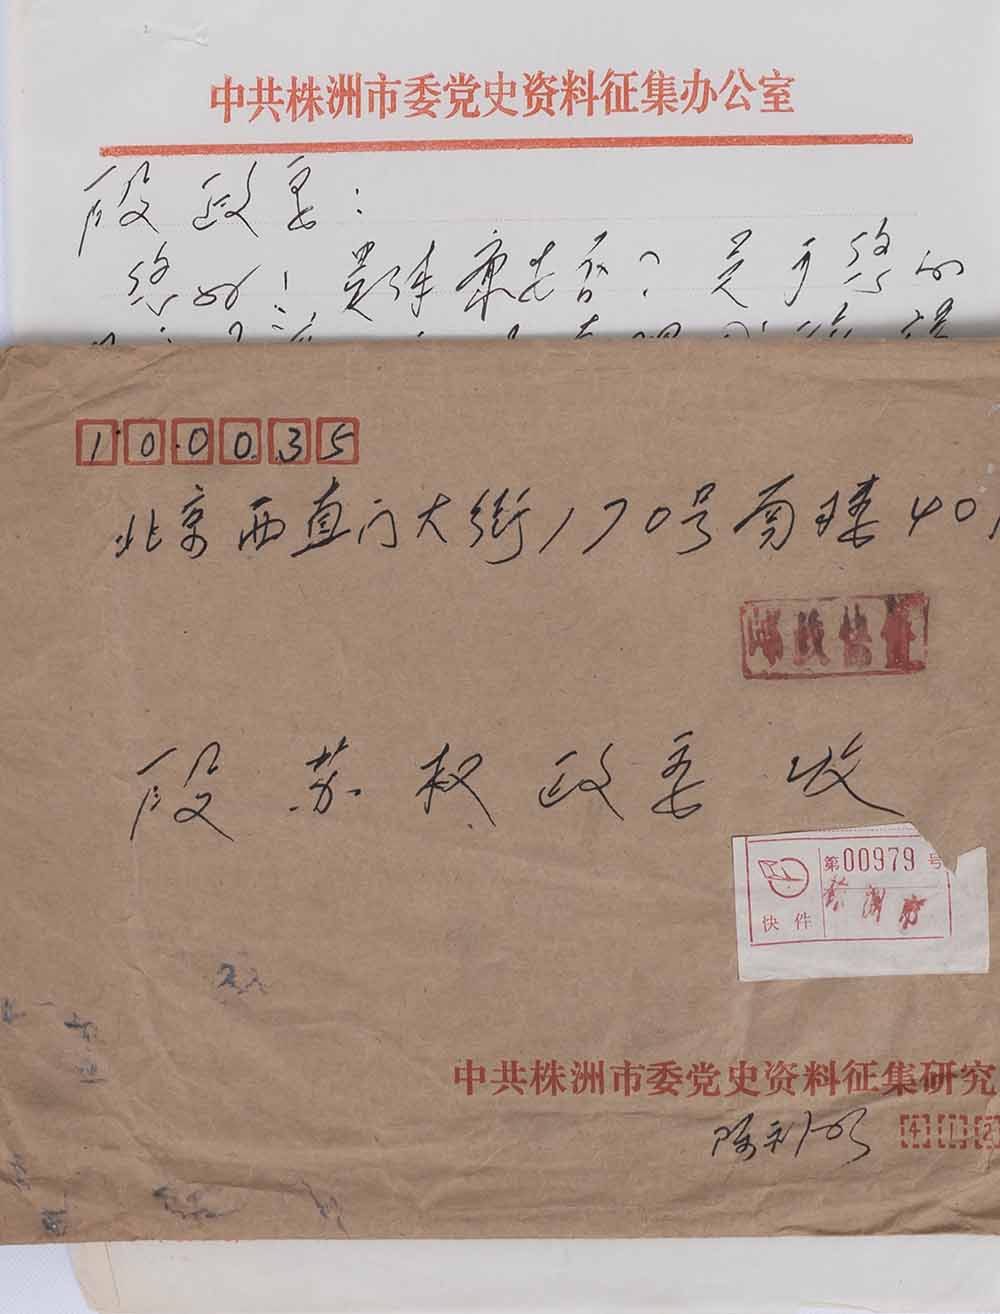 中共株洲市委党史资料征集办公室
段政委：
您好！贵体康吉否？关于您的
100035
北京西直门大街170号南楼40
邮政快件
段苏权政委 收
第00979号
快件
株洲市
中共株洲市委党史资料征集研究
陈利明
412